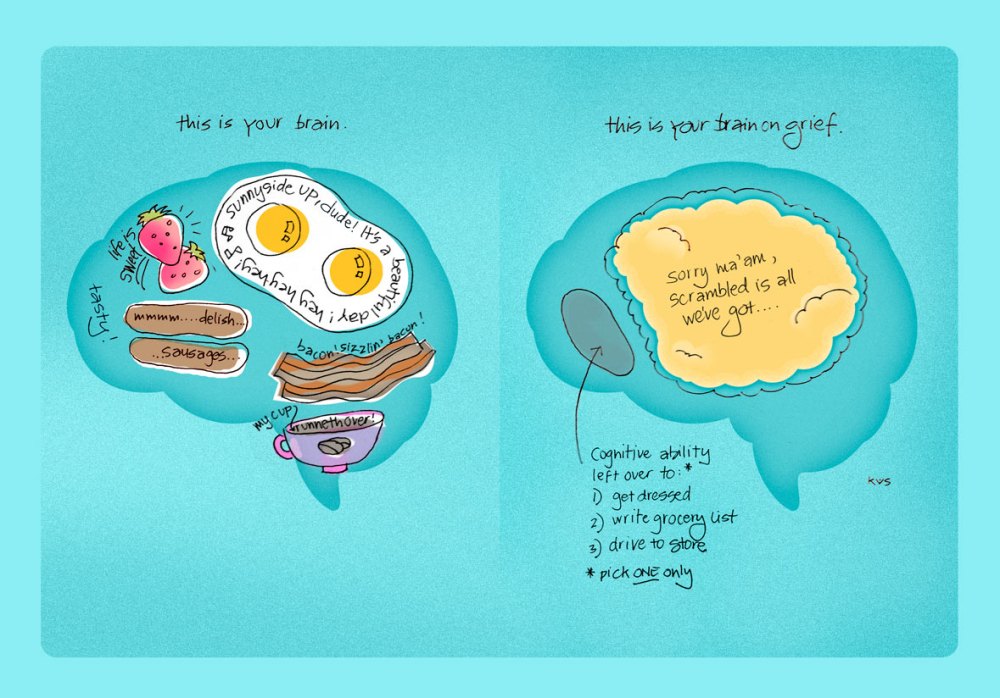 this is your brain.
life is
sweet
tasty!
sunnyside up, dude! It's a beautiful day! hey hey hey!
mmmm....delish...
...sausages...
bacon! sizzlin' bacon!
my cup
runneth over!
this is your brain on grief.
sorry ma'am,
scrambled is all
we've got....
Cognitive ability
left over to:*
1) get dressed
2) write grocery list
3) drive to store
* pick ONE only
KVS